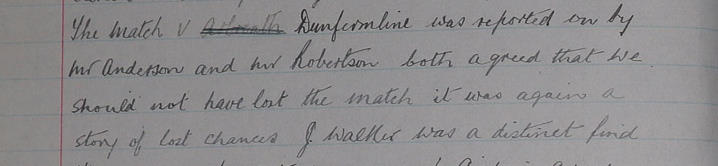 The match v Arbroath Dunfermline was reported on by
mr Anderson and mr Robertson both agreed that we
should not have lost the match it was again a
story of lost chances J. Walker was a distinct find